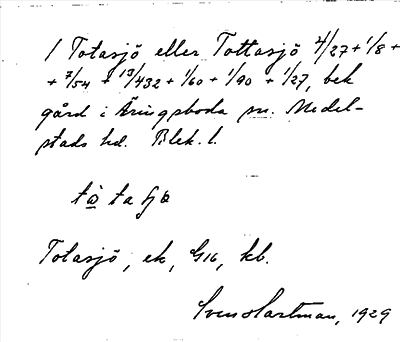 1 Totasjö eller Tottasjö 4/27 + 1/8 +
+ 7/54 + 13/432 + 1/60 + 1/90 + 1/27, bek
gård i Åryngsboda sn. Medel-
stads hd. Blek. l.
Totasjö, ek, G16, kb.
Sven Hartman, 1929